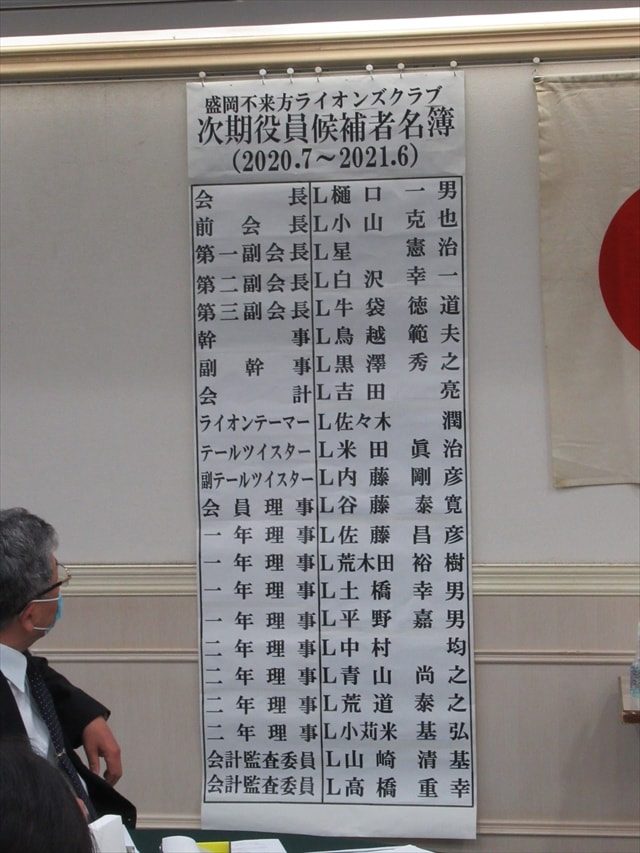 盛岡不来方ライオンズクラブ
次期役員候補者名簿
(2020.7～2021.6)
会長 L樋口一男
前会長 L小山克也
第一副会長 L星憲治
第二副会長 L白沢幸一
第三副会長 L牛袋徳道
幹事 L鳥越範夫
副幹事 L黒澤秀之
会計 L吉田亮
ライオンテーマー L佐々木潤
テールツイスター L米田眞治
副テールツイスター L内藤剛彦
会員理事 L谷藤泰寛
一年理事 L佐藤昌彦
一年理事 L荒木田裕樹
一年理事 L土橋幸男
一年理事 L平野嘉男
二年理事 L中村均
二年理事 L青山尚之
二年理事 L荒道泰之
二年理事 L小苅米基弘
会計監査委員 L山崎清基
会計監査委員 L高橋重幸